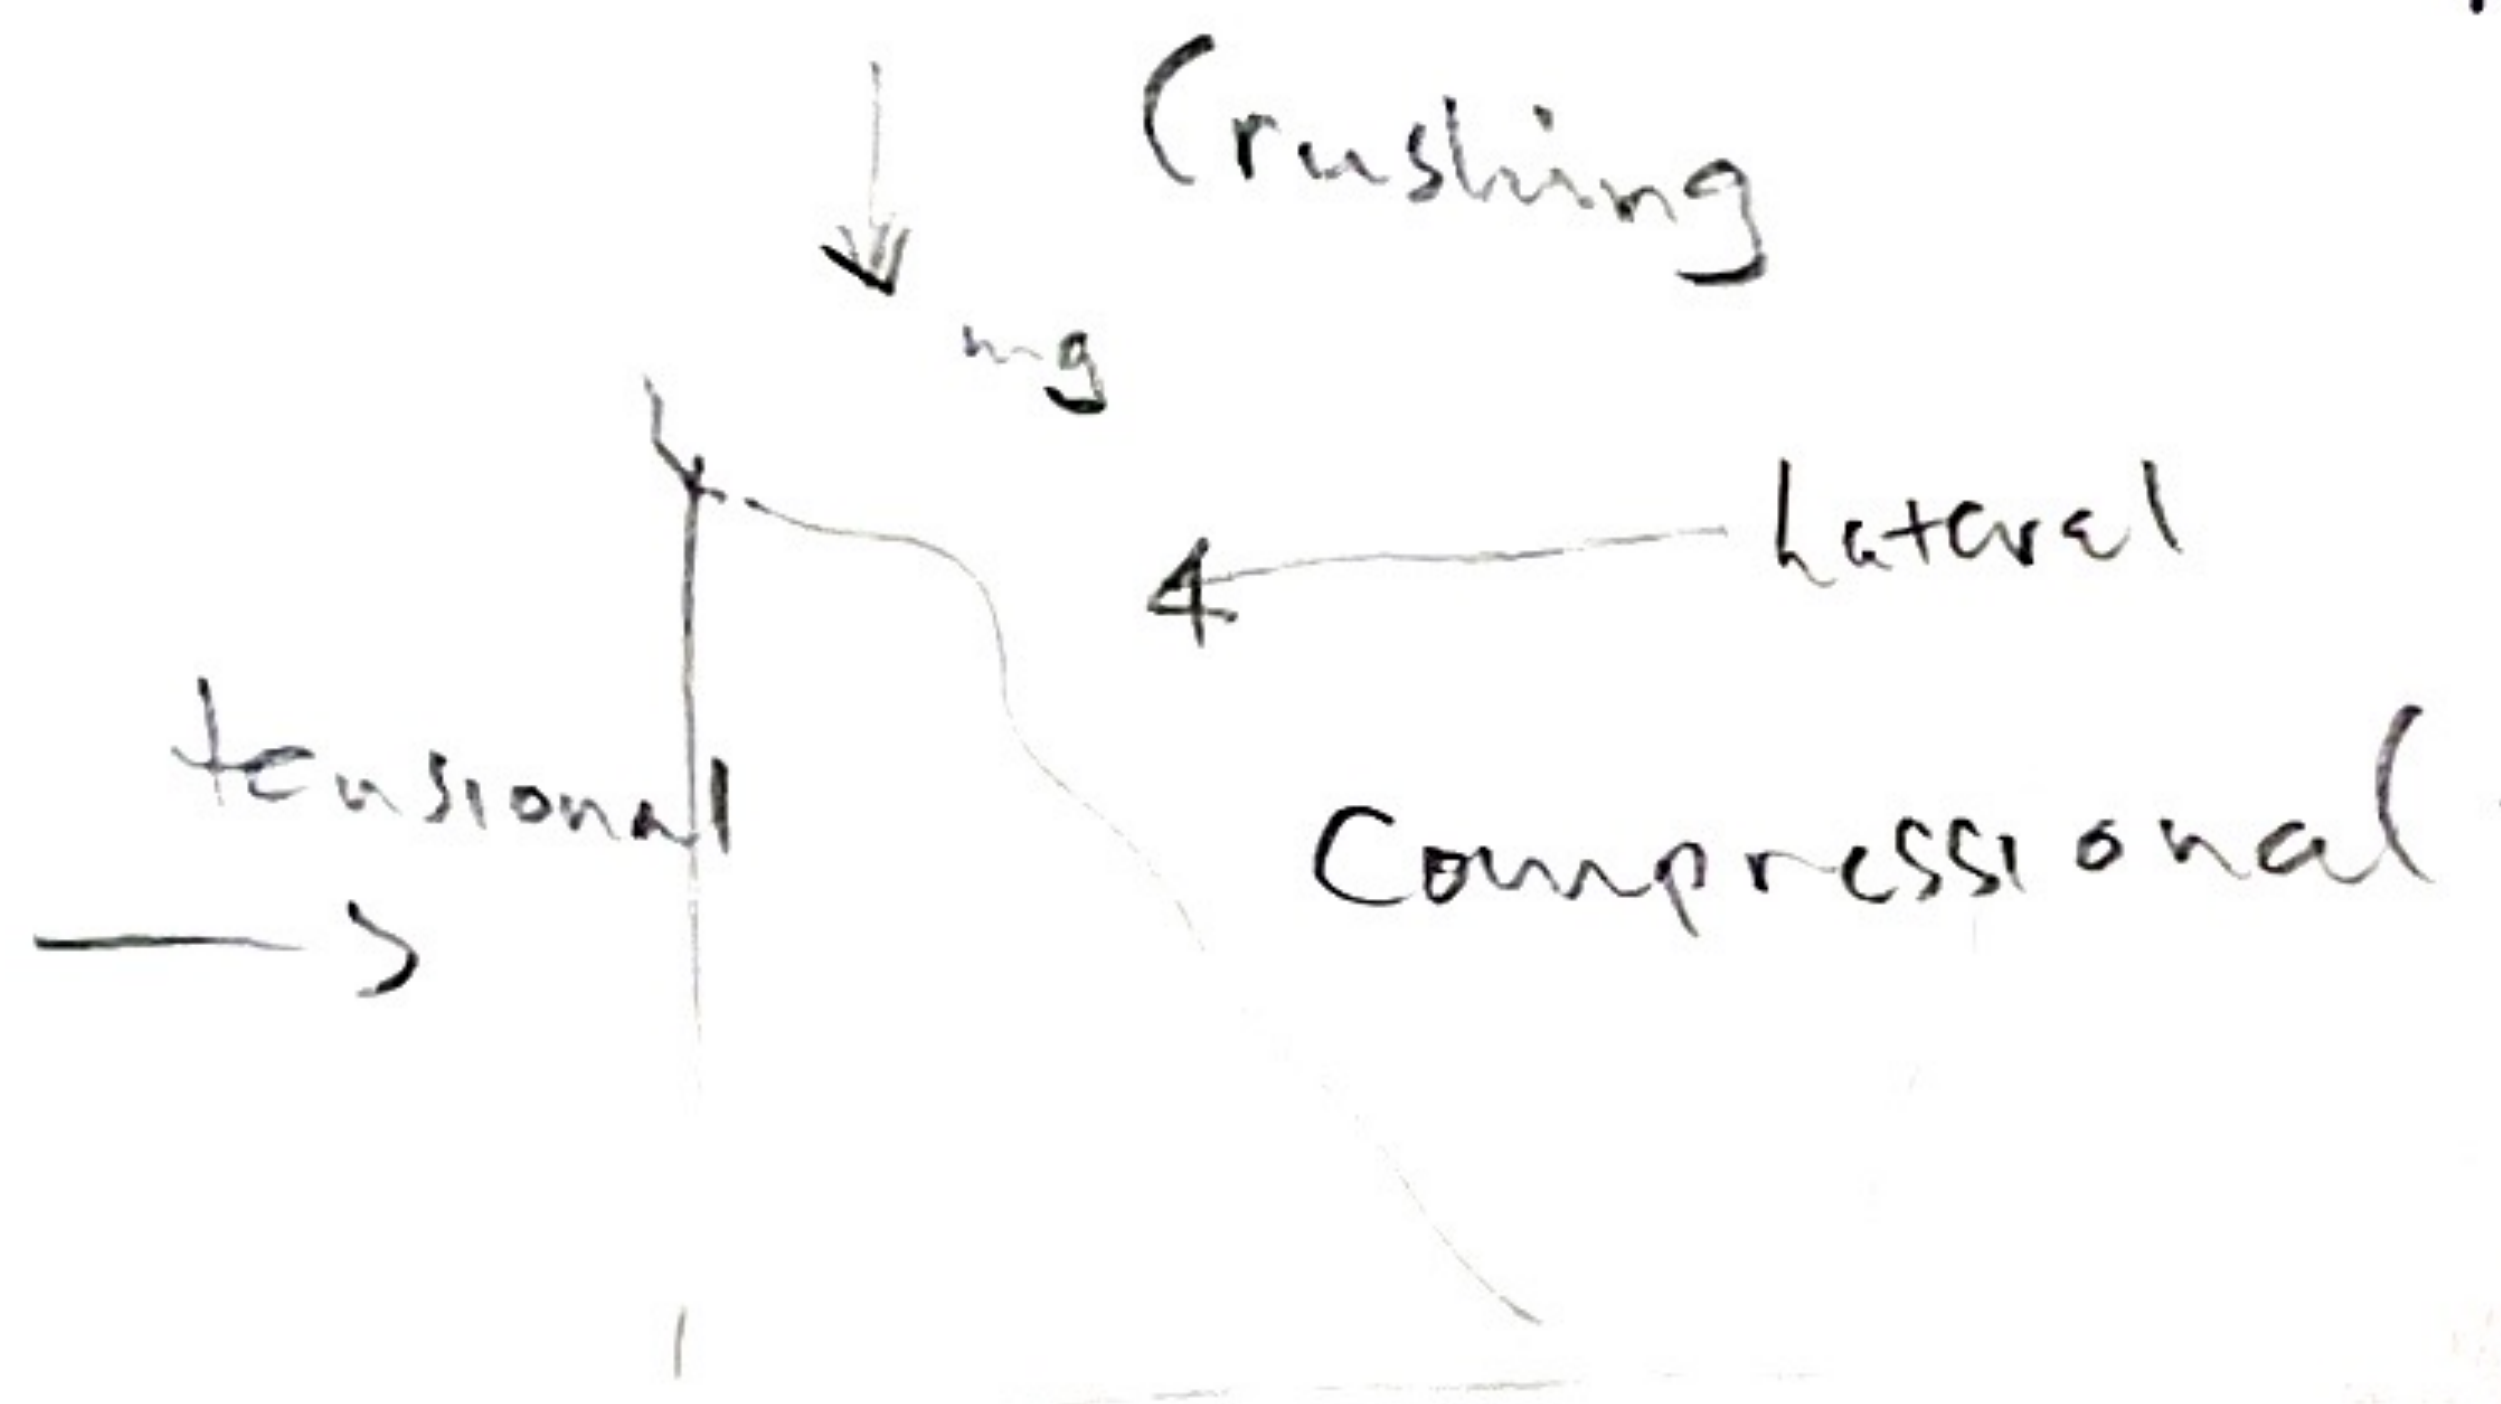 Crushing
mg
Lateral
tensional
Compressional